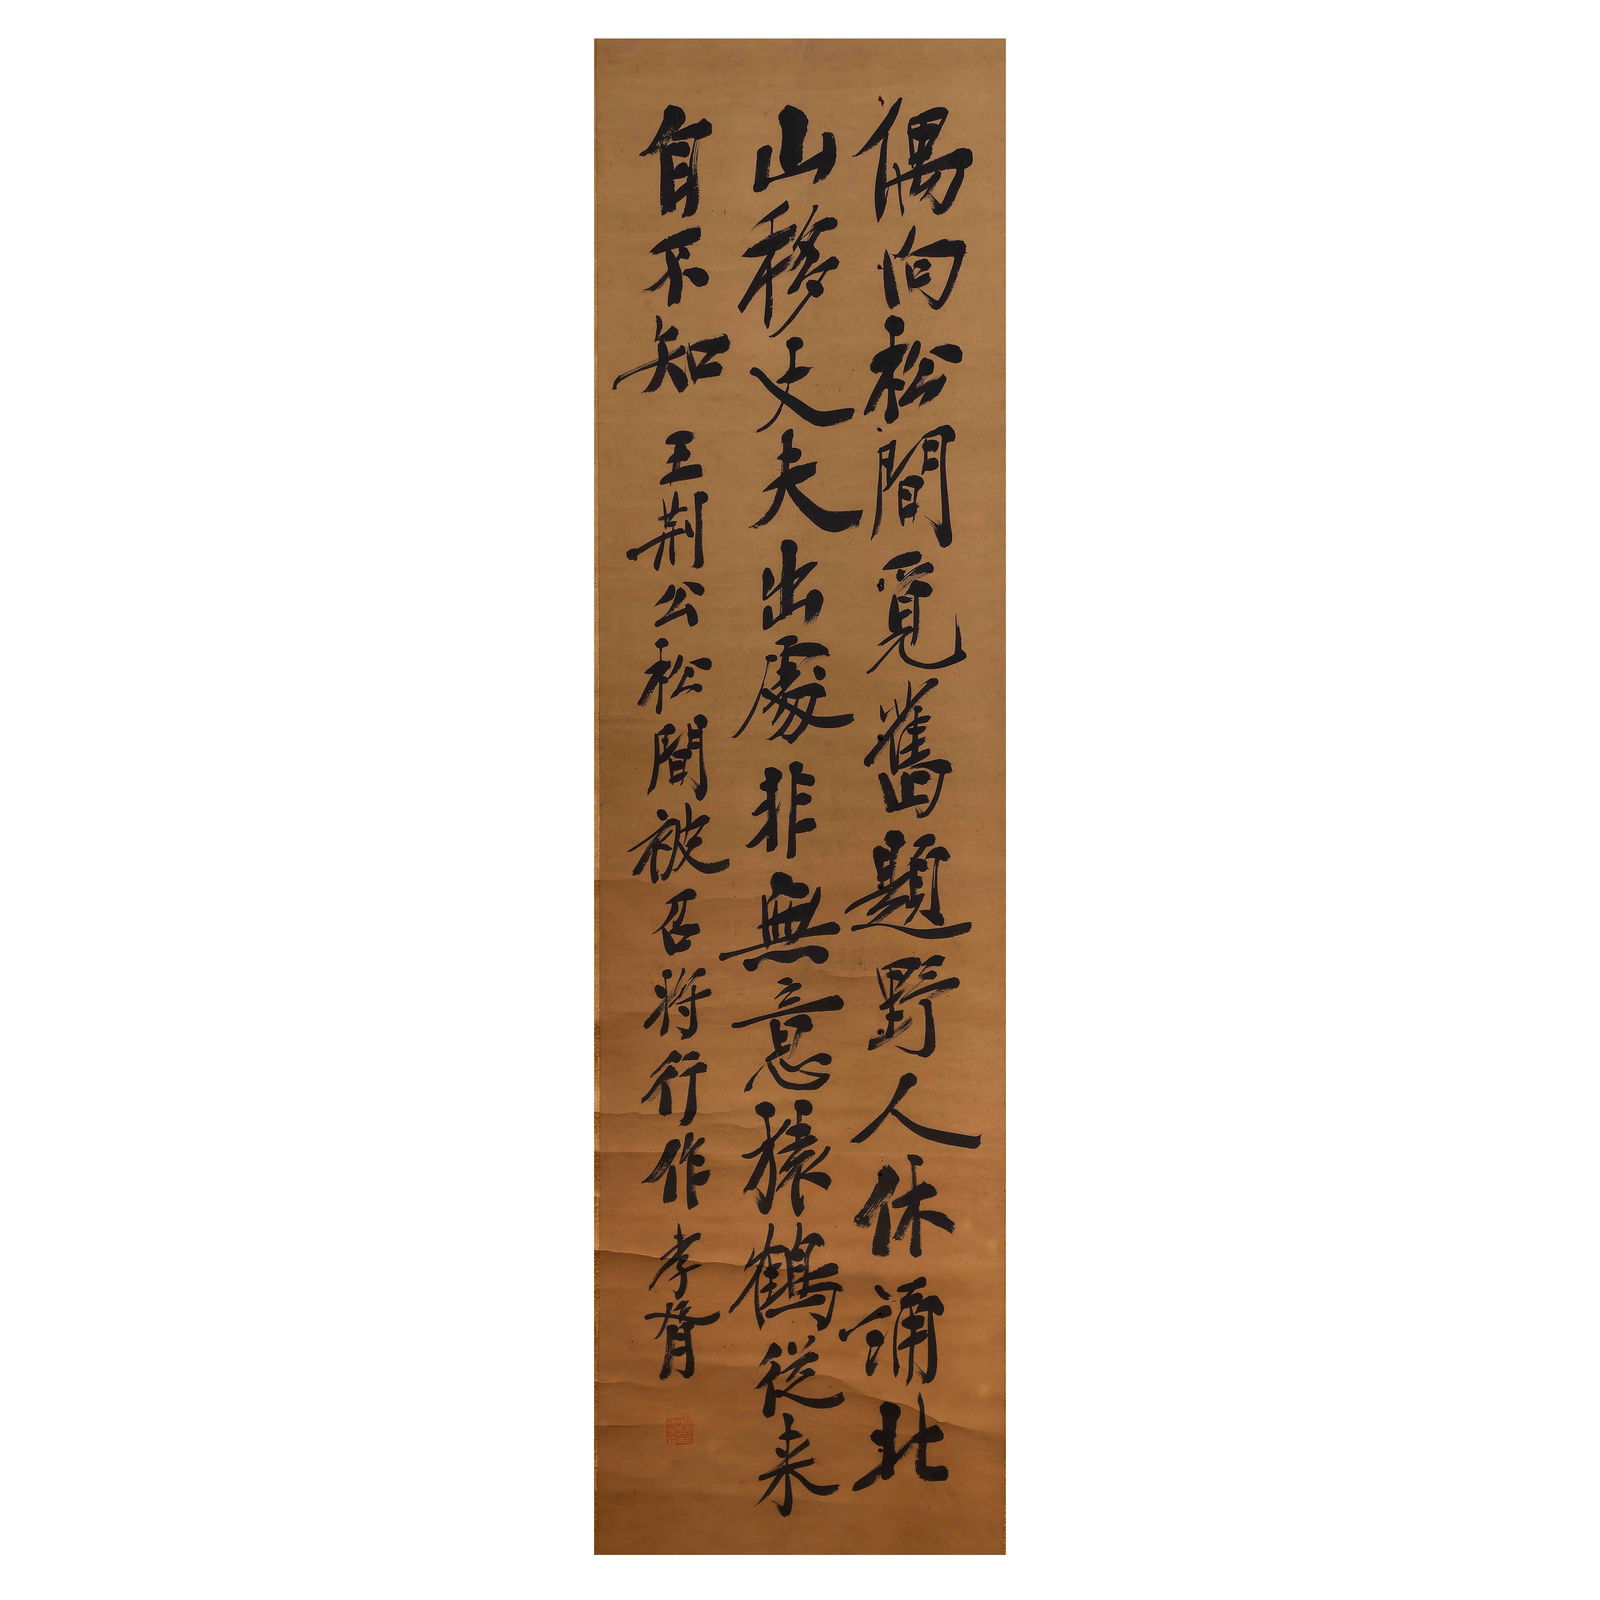 偶向松間覓舊題野人休誦北
山移丈夫出處非無意猿鶴從来
自不知 王荆公松間被召将行作 孝胥